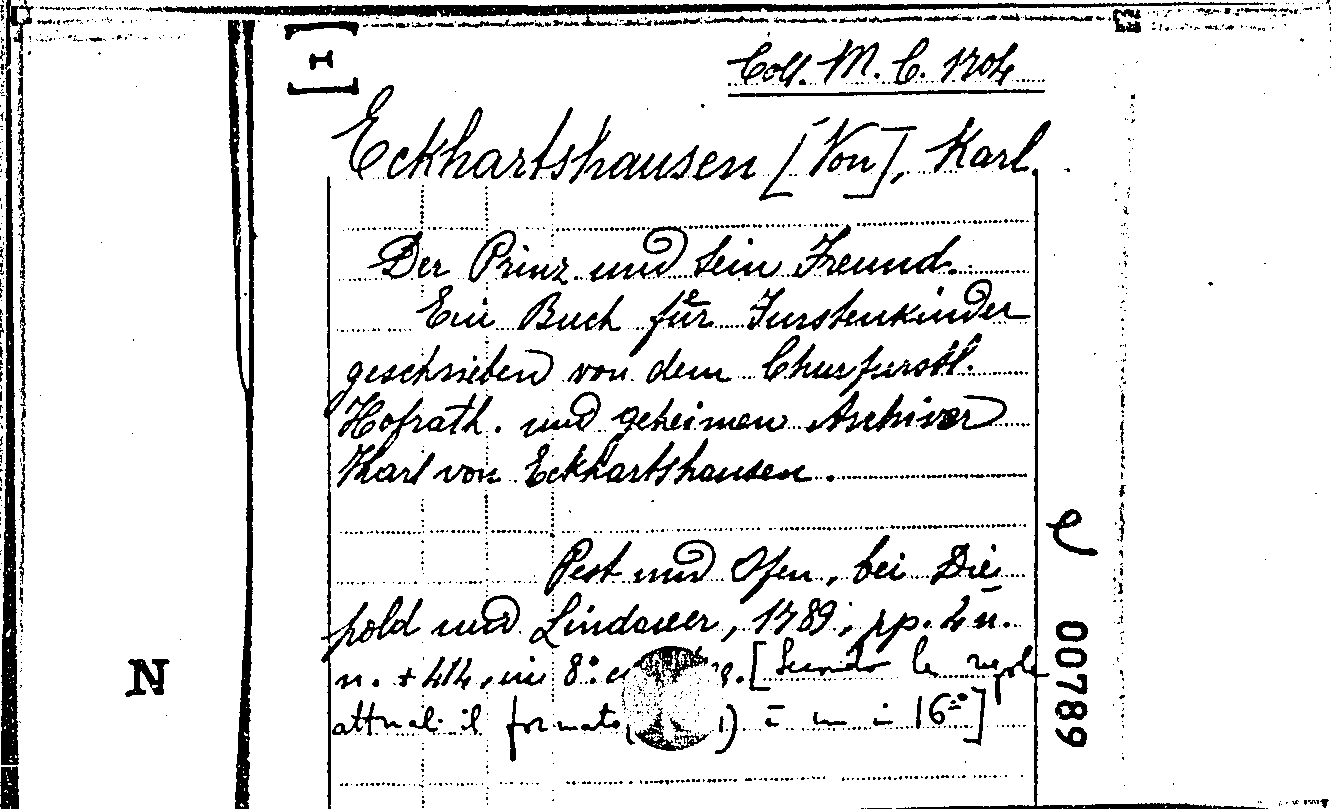 [I]
Coll. M. C. 1704
Eckhartshausen [Von], Karl.
Der Prinz und sein Freund.
Ein Buch für Furstenkinder
geschrieben von dem Churfurstl.
Hofrath. und geheimen Archivar
Karl von Eckhartshausen.
Pest und Ofen, bei Die
pold und Lindauer, 1789, pp. 2 n.
n. + 414, in 8°. [Secondo le regole
attuali il formato è un in 16°]
N
00789